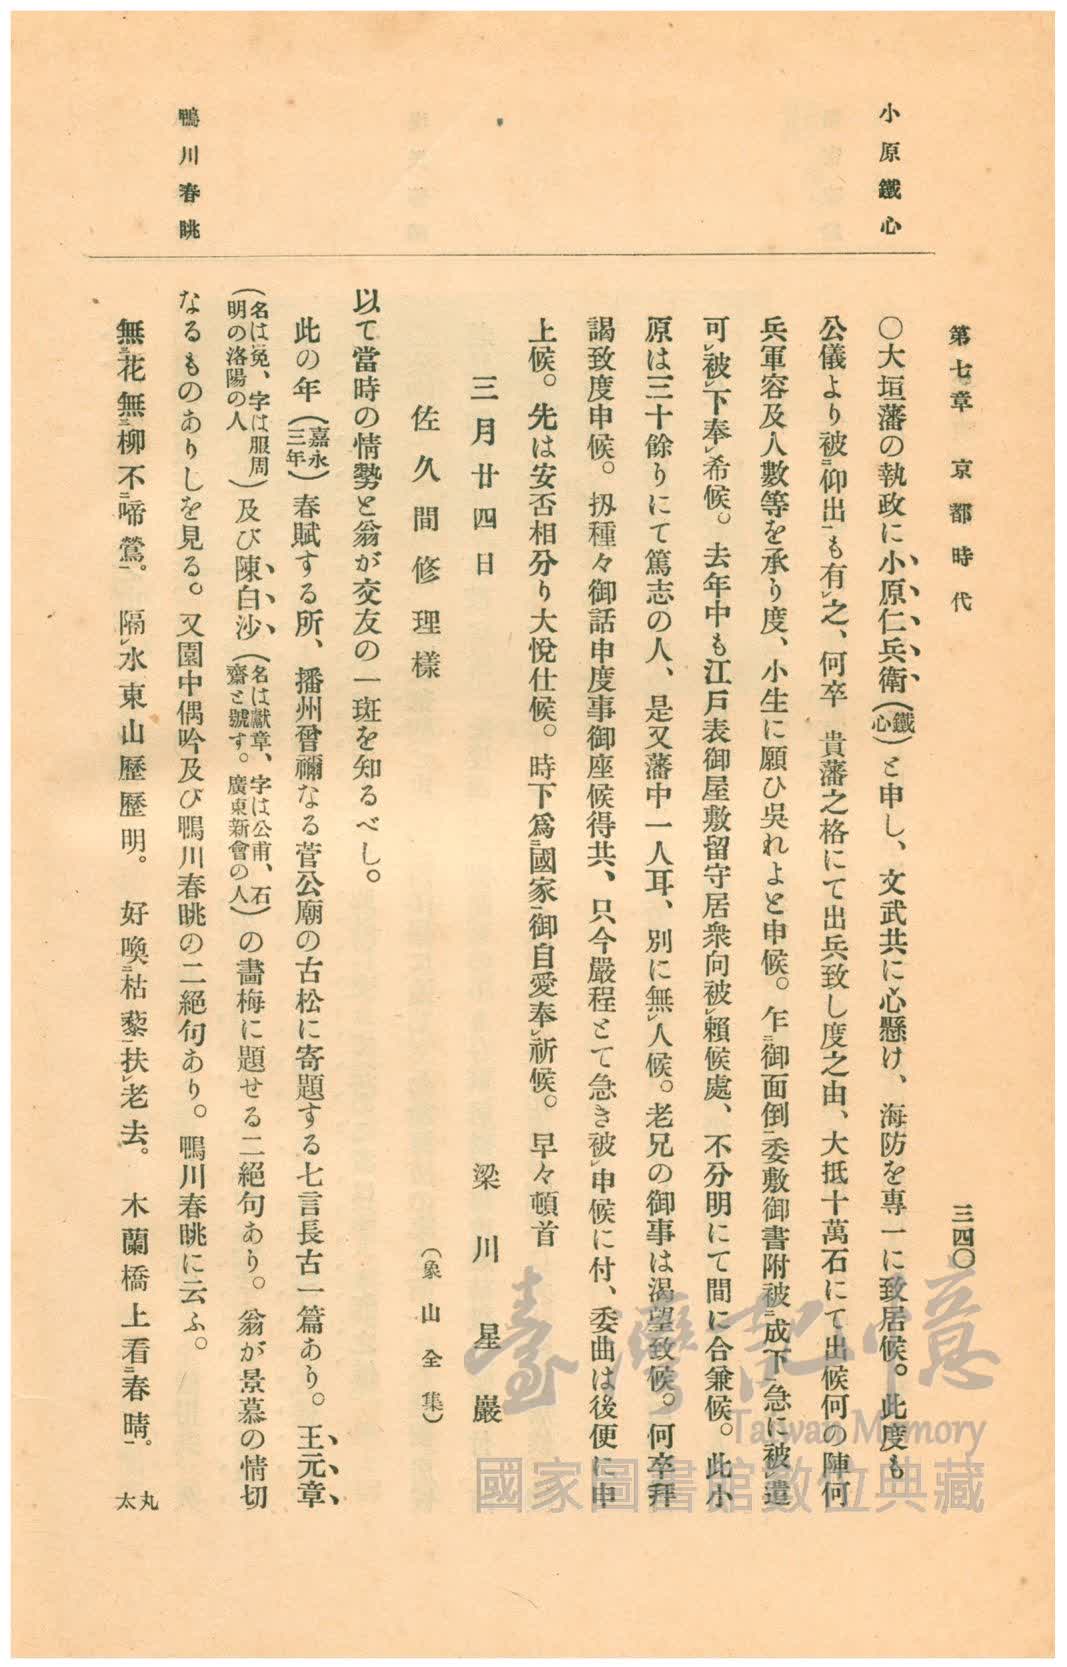 第七章 京都時代 三四〇
小原鐵心
鴨川春眺
〇大垣藩の執政に小原仁兵衛(鐵心)と申し、文武共に心懸け、海防を專一に致居候。此度も
公儀より被ニ仰出一も有レ之、何卒 貴藩之格にて出兵致し度之由、大抵十萬石にて出候何の陣何
兵軍容及人數等を承り度、小生に願ひ吳れよと申候。乍ニ御面倒一委敷御書附被ニ成下一急に被レ遣
可レ被レ下奉レ希候。去年中も江戶表御屋敷留守居衆向被レ賴候處、不分明にて間に合兼候。此小
原は三十餘りにて篤志の人、是又藩中一人耳、別に無レ人候。老兄の御事は渴望致候。何卒拜
謁致度申候。扨種々御話申度事御座候得共、只今嚴程とて急き被レ申候に付、委曲は後便に申
上候。先は安否相分り大悅仕候。時下爲ニ國家一御自愛奉レ祈候。早々頓首
三月廿四日 梁川星巖
佐久間修理樣 (象山全集)
以て當時の情勢と翁が交友の一斑を知るべし。
此の年(嘉永三年)春賦する所、播州曾禰なる菅公廟の古松に寄題する七言長古一篇あり。王元章
(名は冕、字は服周明の洛陽の人)及び陳白沙(名は獻章、字は公甫、石齋と號す。廣東新會の人)の畵梅に題せる二絕句あり。翁が景慕の情切
なるものありしを見る。又園中偶吟及び鴨川春眺の二絕句あり。鴨川春眺に云ふ。
無ニ花無ニ柳不ニ啼鶯一。隔レ水東山歷歷明。好喚ニ枯藜一扶レ老去。木蘭橋上看ニ春晴一。
丸太
臺灣記憶
Taiwan Memory
國家圖書館數位典藏